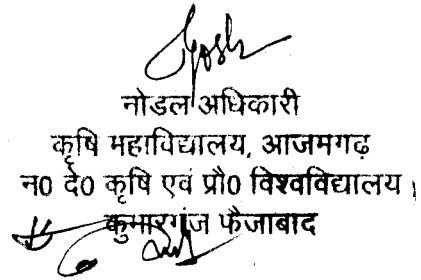 नोडल अधिकारी
कृषि महाविद्यालय, आजमगढ़
न0 दे0 कृषि एवं प्रौ0 विश्वविद्यालय।
कुमारगंज फैजाबाद